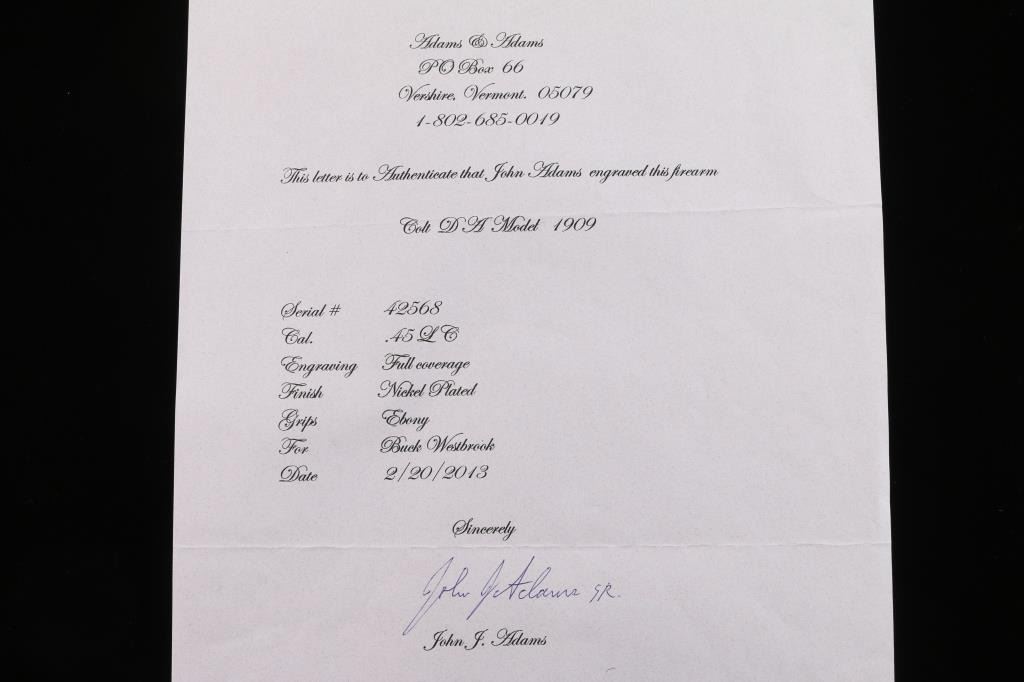 Adams & Adams
PO Box 66
Vershire, Vermont. 05079
1-802-685-0019
This letter is to Authenticate that John Adams engraved this firearm
Colt D A Model 1909
Serial # 42568
Cal. .45 L C
Engraving Full coverage
Finish Nickel Plated
Grips Ebony
For Buck Westbrook
Date 2/20/2013
Sincerely
John J Adams SR.
John J. Adams